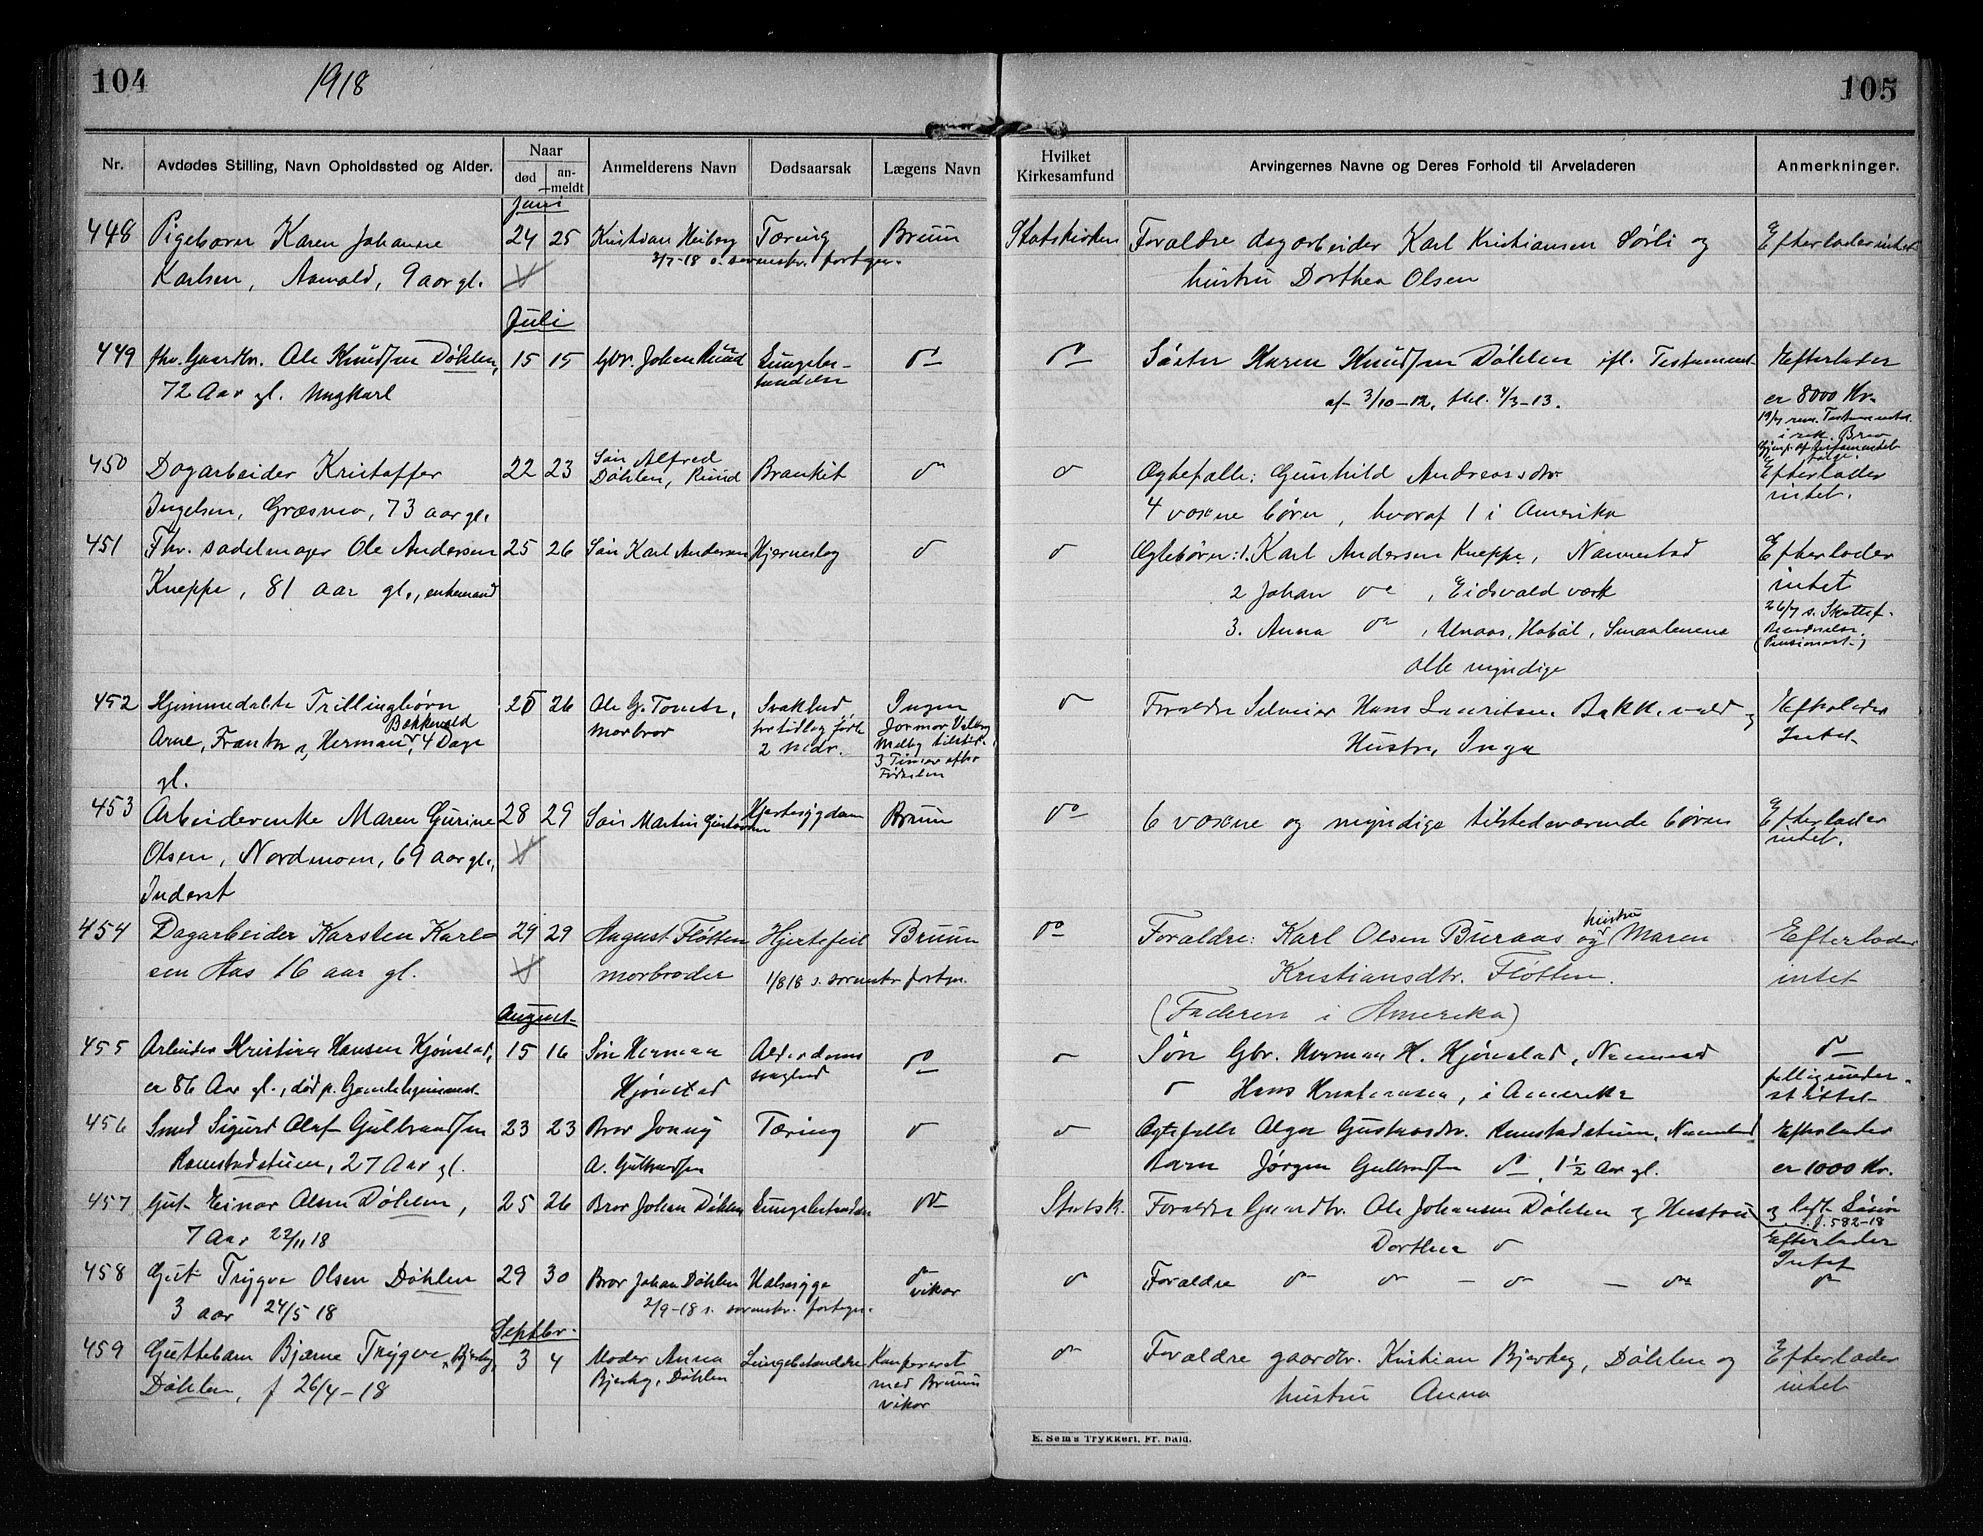 104
1918
105
Nr.
Avdødes Stilling, Navn Opholdssted og Alder.
Naar
død
an-
meldt
Anmelderens Navn
Dødsaarsak
Lægens Navn
Hvilket
Kirkesamfund
Arvingernes Navne og Deres Forhold til Arveladeren
Anmerkninger.
Juni
448 Pigebarn Karen Johanne 24 25 Kristian Heiberg Tæring Bruun Statskirken Forældre dagarbeider Karl Kristiansen Sørli og Efterlader intet
Karlsen, Aawald, 9 aar gl. 2/7-18 s. formskr. fortegn. hustru Dorthea Olsen
Juli
449 fhv. Gaardbr. Ole Knudsen Døhlen, 15 15 Gbr. Johan Ruud Lungebe- Søster Karen Knudsen Døhlen ifl. Testament Efterlader
72 Aar gl. Ungkarl tændelse af 3/10-12, tbl. 4/3-13. er 8000 Kr.
19/7 rem. Testamentet
i rek. Brev
450 Dagarbeider Kristoffer 22 23 Søn Alfred Brankit Ægtefælle: Gunhild Andreasdtr. Efterlader
Døhlen, Ruud intet.
Ingelsen, Græsmo, 73 aar gl. 4 voxne børn, hvoraf 1 i Amerika
451 Fhv. sadelmager Ole Andersen 25 26 Søn Karl Andersen Hjerneslag Ægtebørn: 1. Karl Andersen Kneppe, Nannestad Efterlader
Kneppe, 81 aar gl., enkemand 2 Johan do, Eidsvold værk intet
3. Anna do, Hobøl, Smaalenene 26/7 s. Skattef.
(Pensionist)
alle myndige
452 Hjemmedøbte Trillingbørn 25 26 Ole G. Tomte, Svakhed Ingen Forældre Hans Lauritsen Bakkevold og Efterlader
Bakkevold
Arne, Frantz, Herman, 4 Dage morbror for tidlig født Jormor Valborg Hustru Inga Intet
gl. 2 mdr. Melby tilsted.
3 Timer efter
Fødselen
453 Arbeiderenke Maren Gurine 28 29 Søn Martin Gustavsen Hjertesygdom Bruun do 6 voxne og myndige tilstedeværende børn Efterlader
Olsen, Nordmoen, 69 aar gl., intet.
Inderst
454 Dagarbeider Karsten Karl- 29 29 August Fløtten Hjertefeil Bruun do Forældre: Karl Olsen Buraas og hustru Maren Efterlader
sen Aas 16 aar gl. morbroder 1/8 18 s. formskr fortegn. Kristiansdtr. Fløtten. intet
(Faderen i Amerika)
August
455 Arbeider Kristian Hansen Hjønstad, 15 16 Søn Herman Alderdoms- Søn Gbr. Herman H. Hjønstad, Nannestad
er 86 Aar gl., død p. Gamlehjemmet Hjønstad svaghed Hans Kristiansen, i Amerika fattigunder-
støttet
456 Smed Sigurd Olaf Gulbrandsen 23 23 Bror Jonny Tæring Ægtefælle Olga Gustavsdtr. Ramstadstuen, Nannestad Efterlader
Ramstadstuen, 27 Aar gl. A. Gulbrandsen Barn Jørgen Gulbrandsen do, 1½ Aar gl. er 1000 Kr.
457 Gut Einar Olsen Døhlen, 25 26 Bror Johan Døhlen Lungebetændelse do Statsk. Forældre Gaardbr. Ole Johansen Døhlen og Hustru
7 Aar 22/11 18 Dorthea do s. J. 582-18
Efterlader
Intet
458 Gut Trygve Olsen Døhlen 29 30 Bror Johan Døhlen Halssyge do Forældre do do - do - do do
vikar
3 aar 24/5 18 2/9-18 s. formskr. fortegn.
Septbr.
459 Guttebarn Bjarne Trygve Bjerkø, 3 4 Moder Anna Lungebetændelse Konfereret do Forældre gaardbr. Kristian Bjerkø, Døhlen og Efterlader
Døhlen, f 26/4-18 Bjerkø, Døhlen med Bruuns hustru Anna intet
vikar
E. Sem's Trykkeri, Fr. hald.